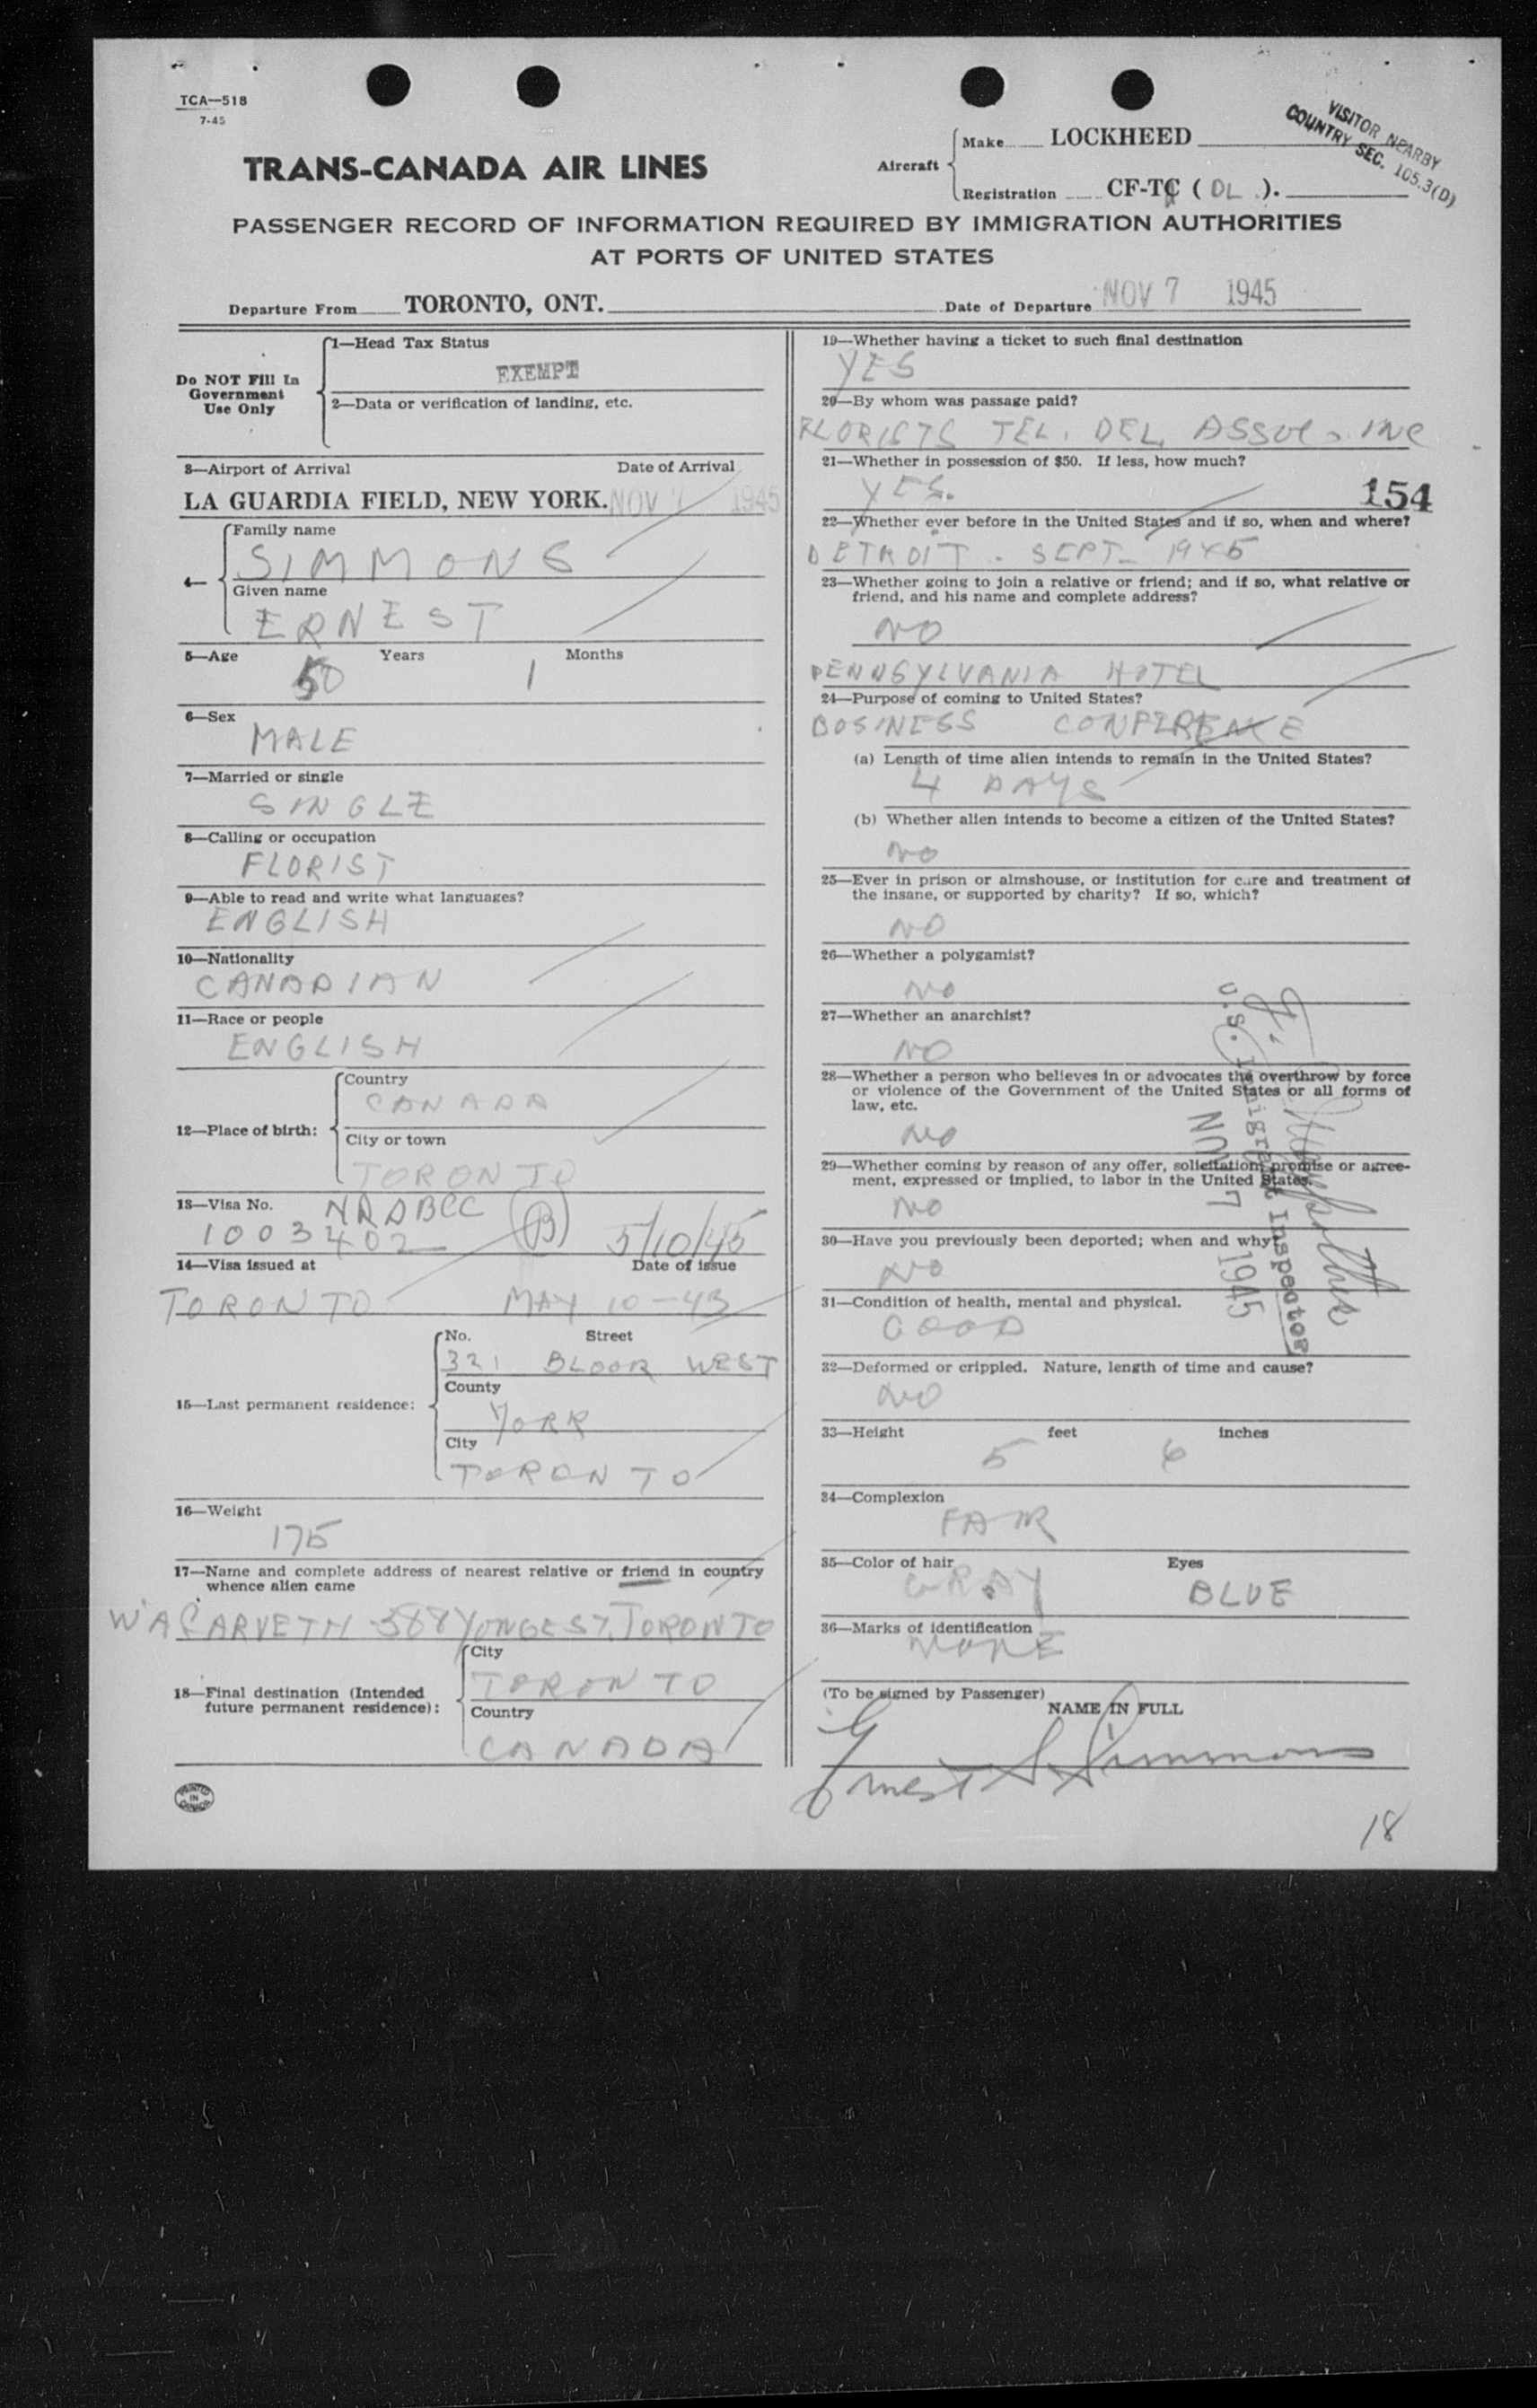 TCA—518
7-45
VISITOR NEARBY
COUNTRY SEC. 105.3(D)
TRANS-CANADA AIR LINES
Aircraft
Make LOCKHEED
Registration CF-TC ( DL ).
PASSENGER RECORD OF INFORMATION REQUIRED BY IMMIGRATION AUTHORITIES
AT PORTS OF UNITED STATES
Departure From TORONTO, ONT.
Date of Departure NOV 7 1945
Do NOT Fill In
Government
Use Only
1—Head Tax Status
EXEMPT
2—Data or verification of landing, etc.
3—Airport of Arrival Date of Arrival
LA GUARDIA FIELD, NEW YORK. NOV 7 1945
4—
Family name
SIMMONS
Given name
ERNEST
5—Age 50 Years 1 Months
6—Sex
MALE
7—Married or single
SINGLE
8—Calling or occupation
FLORIST
9—Able to read and write what languages?
ENGLISH
10—Nationality
CANADIAN
11—Race or people
ENGLISH
12—Place of birth:
Country
CANADA
City or town
TORONTO
13—Visa No. NRDBCC
1003402 (B) 5/10/45
14—Visa issued at Date of issue
TORONTO MAY 10-43
15—Last permanent residence:
No. Street
321 BLOOR WEST
County
YORK
City
TORONTO
16—Weight
175
17—Name and complete address of nearest relative or friend in country
whence alien came
W A CARVETH 388 YONGE ST. TORONTO
18—Final destination (Intended
future permanent residence):
City
TORONTO
Country
CANADA
PRINTED
IN
CANADA
19—Whether having a ticket to such final destination
YES
20—By whom was passage paid?
FLORISTS TEL. DEL. ASSOC. INC
21—Whether in possession of $50. If less, how much?
YES. 154
22—Whether ever before in the United States and if so, when and where?
DETROIT - SEPT- 1945
23—Whether going to join a relative or friend; and if so, what relative or
friend, and his name and complete address?
NO
PENNSYLVANIA HOTEL
24—Purpose of coming to United States?
BUSINESS CONFERENCE
(a) Length of time alien intends to remain in the United States?
4 DAYS
(b) Whether alien intends to become a citizen of the United States?
NO
25—Ever in prison or almshouse, or institution for care and treatment of
the insane, or supported by charity? If so, which?
NO
26—Whether a polygamist?
NO
27—Whether an anarchist?
NO
28—Whether a person who believes in or advocates the overthrow by force
or violence of the Government of the United States or all forms of
law, etc.
NO
29—Whether coming by reason of any offer, solicitation, promise or agree-
ment, expressed or implied, to labor in the United States.
NO
30—Have you previously been deported; when and why?
NO
31—Condition of health, mental and physical.
GOOD
32—Deformed or crippled. Nature, length of time and cause?
NO
33—Height 5 feet 6 inches
34—Complexion
FAIR
35—Color of hair Eyes
GRAY BLUE
36—Marks of identification
NONE
(To be signed by Passenger)
NAME IN FULL
Ernest S Simmons
U.S. Immigrant Inspector
NOV 7 1945
18